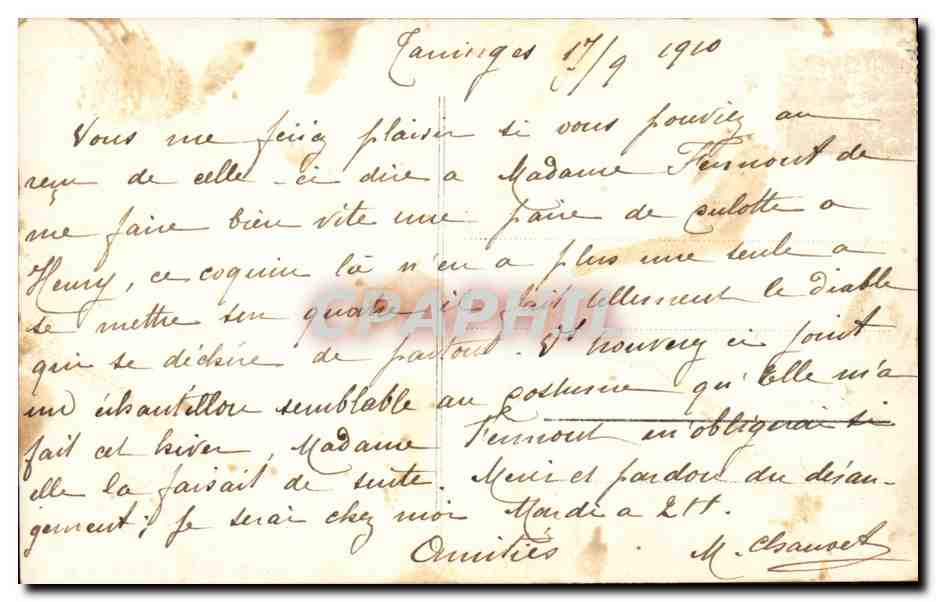 Taninges 17/9 1910
Vous me feriez plaisir si vous pouviez au
reçu de celle-ci dire a Madame Fernout de
me faire bien vite une paire de culotte a
Henry, ce coquin là n'en a plus une seule a
se mettre son quatre il fait tellement le diable
qui se déchire de partout. Vs trouverez ci joint
un échantillon semblable au costume qu'Elle m'a
fait cet hiver, Madame Fernout m'obligerai si
elle la faisait de suite. Merci et pardon du déran-
gement; je serai chez moi Mardi a 2H.
Amitiés M. Chauvet
CPAPHIL